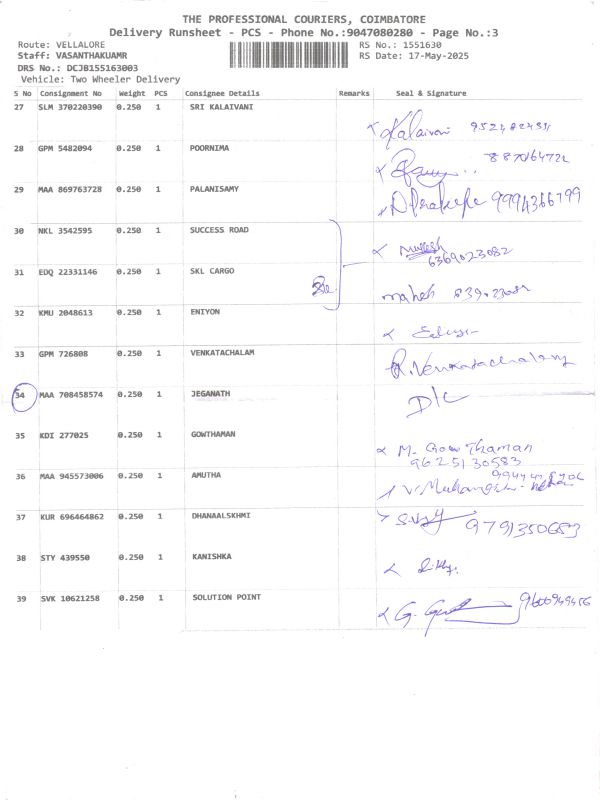 THE PROFESSIONAL COURIERS, COIMBATORE
Delivery Runsheet - PCS - Phone No.:9047080280 - Page No.:3
Route: VELLALORE RS No.: 1551630
Staff: VASANTHAKUAMR RS Date: 17-May-2025
DRS No.: DCJB155163003
Vehicle: Two Wheeler Delivery
S No Consignment No Weight PCS Consignee Details Remarks Seal & Signature
27 SLM 370220390 0.250 1 SRI KALAIVANI Kalaivani
28 GPM 5482094 0.250 1 POORNIMA
29 MAA 869763728 0.250 1 PALANISAMY 9994366799
30 NKL 3542595 0.250 1 SUCCESS ROAD
6369023082
31 EDQ 22331146 0.250 1 SKL CARGO mahesh
32 KMU 2048613 0.250 1 ENIYON
33 GPM 726808 0.250 1 VENKATACHALAM R. Venkatachalam
34 MAA 708458574 0.250 1 JEGANATH D/C
35 KDI 277025 0.250 1 GOWTHAMAN M. GowThaman
9625130583
36 MAA 945573006 0.250 1 AMUTHA
37 KUR 696464862 0.250 1 DHANAALSKHMI 9791350653
38 STY 439550 0.250 1 KANISHKA
39 SVK 10621258 0.250 1 SOLUTION POINT 9600949456